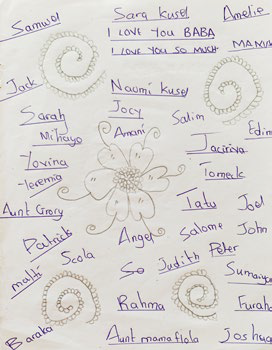 Samwel
Sara Kusel
Amelie
I LOVE YOU BABA
I LOVE YOU SO MUCH
MAMU
Jack
Naomi Kusel
Jocy
Salim
Sarah
Mihayo
Amani
Edim
Jaciriya
Yovina
Jeremia
Tomerk
Aunt Grory
Tatu
Joel
Patrick
Angel
Salome
John
Scola
Judith
Peter
malti
So
Sumaiya
Rahma
Furah
Baraka
Aunt mama flola
Joshua